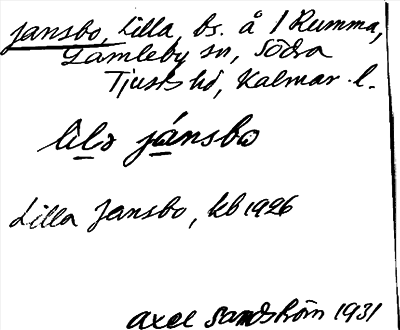 Jansbo, Lilla, bs. å 1 Rumma,
Gamleby sn, Södra
Tjusts hd, Kalmar l.
lìlə jánsbω
Lilla Jansbo, kb 1926
Axel Sandström 1931